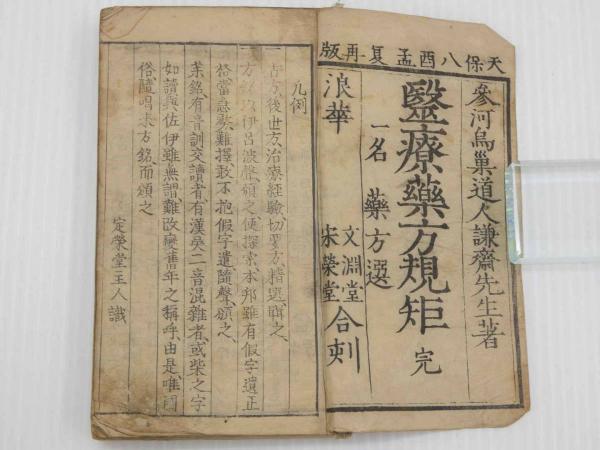 天保八酉孟夏再版
參河烏巢道人謙齋先生著
醫療藥方規矩 完
一名 藥方選
浪華 文淵堂 宋榮堂 合刻
凡例
一古方後世方治療經驗切要方精選輯之
一方銘以伊呂波聲頒之便探索本邦雖有假字遣正
格當急歟難擇敢不抱假字遣隨聲頒之
藥銘有音訓交讀者有漢吳二音混雜者或柴之字
如讀與佐伊雖無謂難改變舊年之稱呼由是唯國
俗隨唱来方銘而頒之
定榮堂主人識